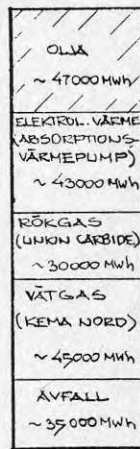 OLJA
~ 47000 MWh
ELEKTROL. VÄRME
(ABSORPTIONS-
VÄRMEPUMP)
~ 43000 MWh
RÖKGAS
(UNION CARBIDE)
~ 30000 MWh
VÄTGAS
(KEMA NORD)
~ 45000 MWh
AVFALL
~ 35000 MWh